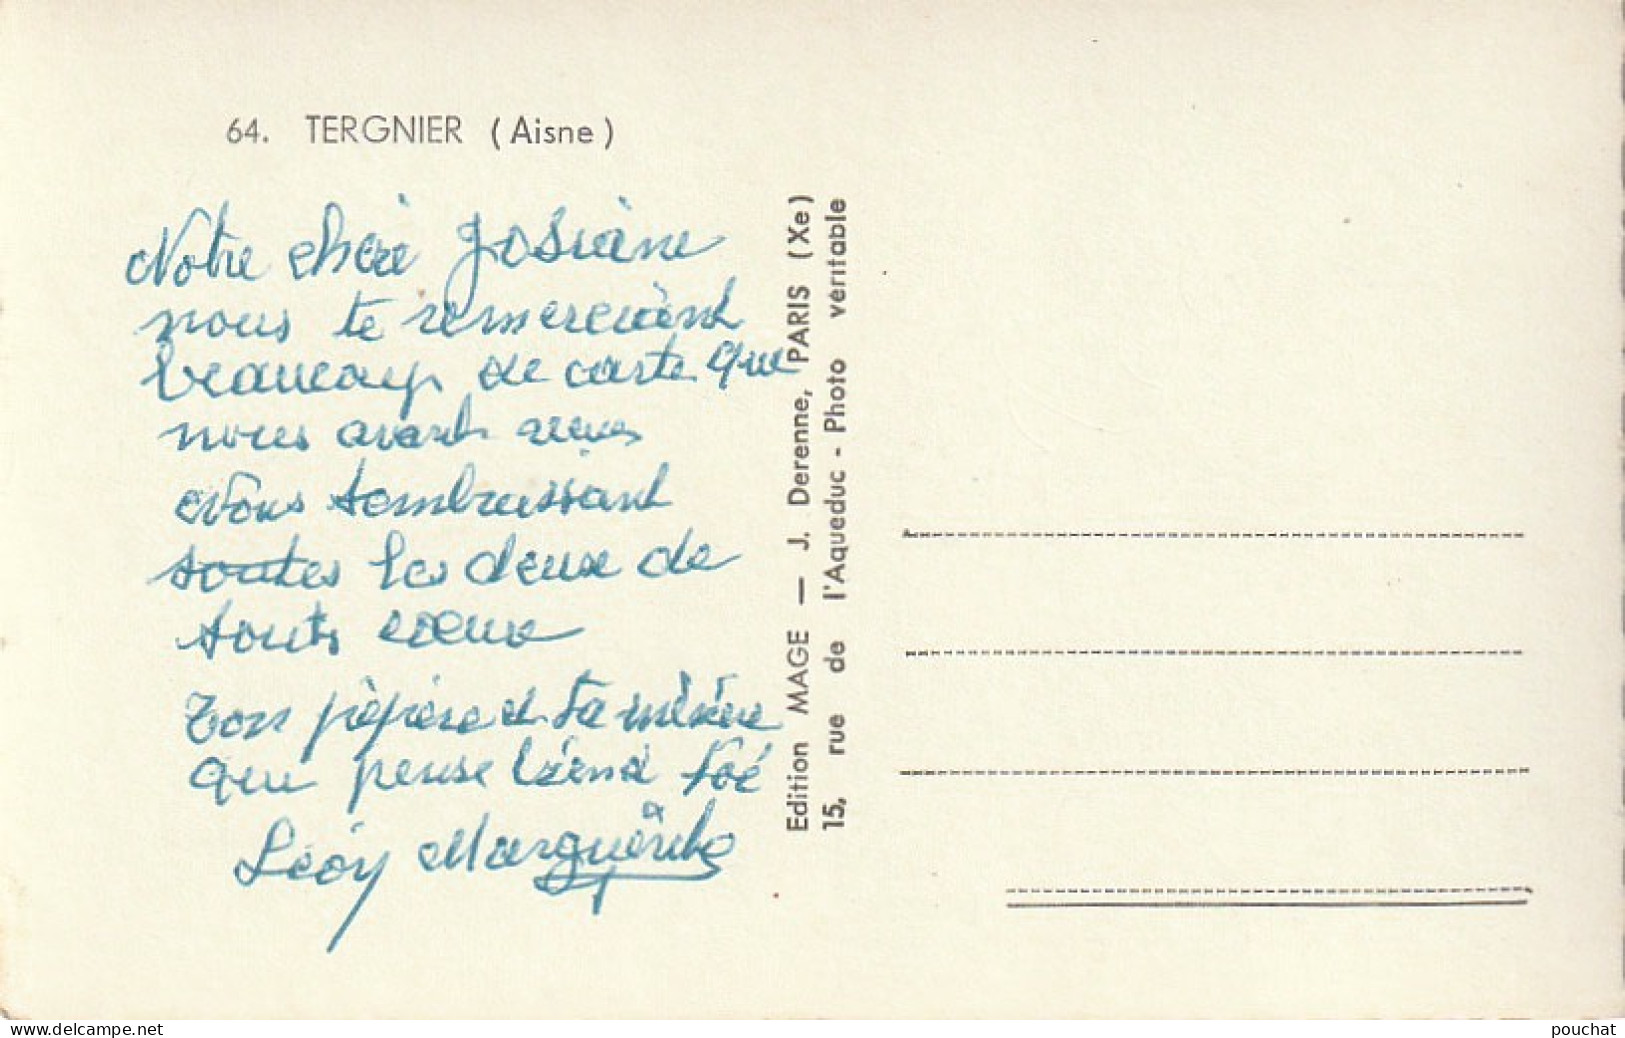 64. TERGNIER (Aisne)
Notre chère Josiane
nous te remercient
beaucoup de carte que
nous avont reçus
Nous tembraissant
toutes les deux de
touts coeur
Ton pépère et ta mémére
que pense bien a toé
Léon Marguerite
Edition MAGE — J. Derenne, PARIS (Xe)
15, rue de l'Aqueduc - Photo véritable
www.delcampe.net
pouchat